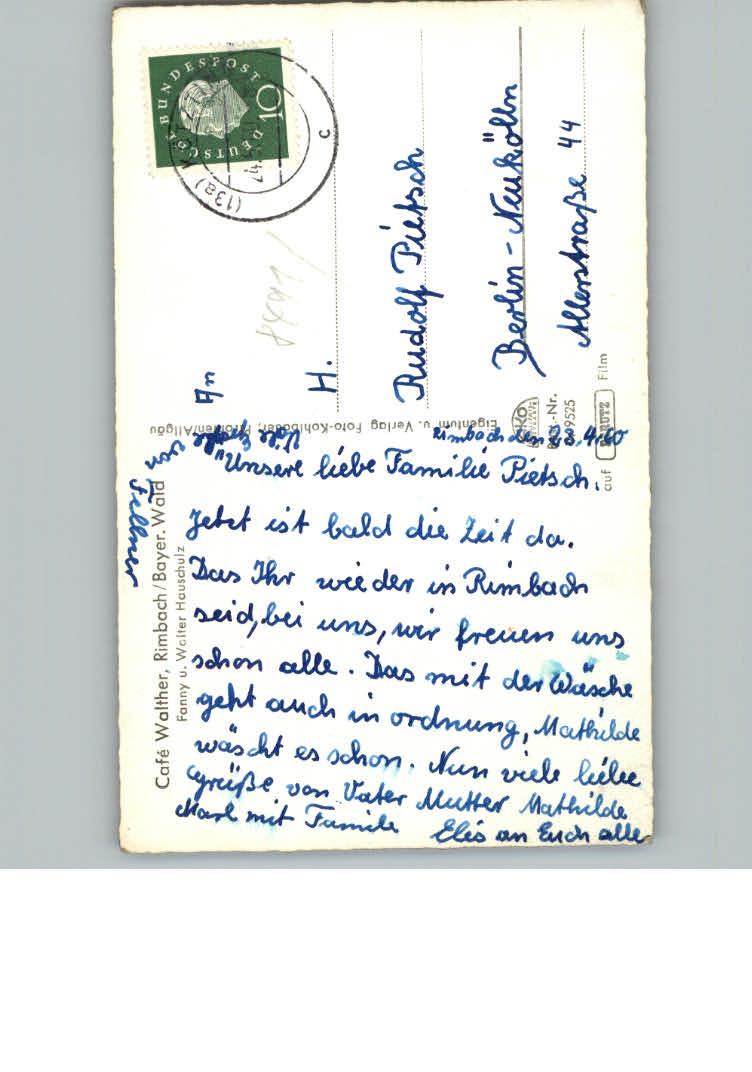 Rimbach den 23.4.60
"Unsere liebe Familie Pietsch.
Jetzt ist bald die Zeit da.
Das Ihr wieder in Rimbach
seid, bei uns, wir freuen uns
schon alle. Das mit der Wäsche
geht auch in ordnung, Mathilde
wäscht es schon. Nun viele liebe
grüße von Vater Mutter Mathilde
Karl mit Familie Elis an Euch alle
Viele Grüße
von
Fellner
Café Walther, Rimbach/Bayer. Wald
Fanny u. Walter Hauschulz
Eigentum u. Verlag Foto-Kohlbauer, Pfronten/Allgäu
Best.-Nr.
auf PERUTZ Film
DEUTSCHE BUNDESPOST
10
(13a)
c
An
H.
Rudolf Pietsch
Berlin-Neukölln
Allerstraße 44